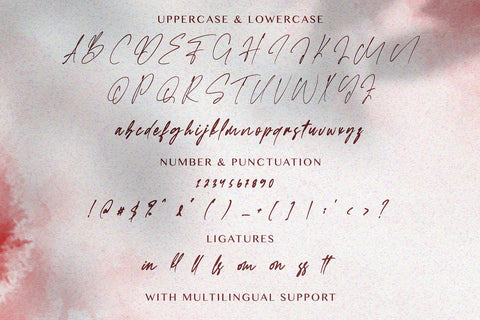 UPPERCASE & LOWERCASE
A B C D E F G H I J K L M N
O P Q R S T U V W X Y Z
abcdefghijklmnopqrstuvwxyz
NUMBER & PUNCTUATION
1234567890
! @ # $ % ^ & * ( ) _ + { } | : " < > ?
LIGATURES
in ll ls om on ss tt
WITH MULTILINGUAL SUPPORT